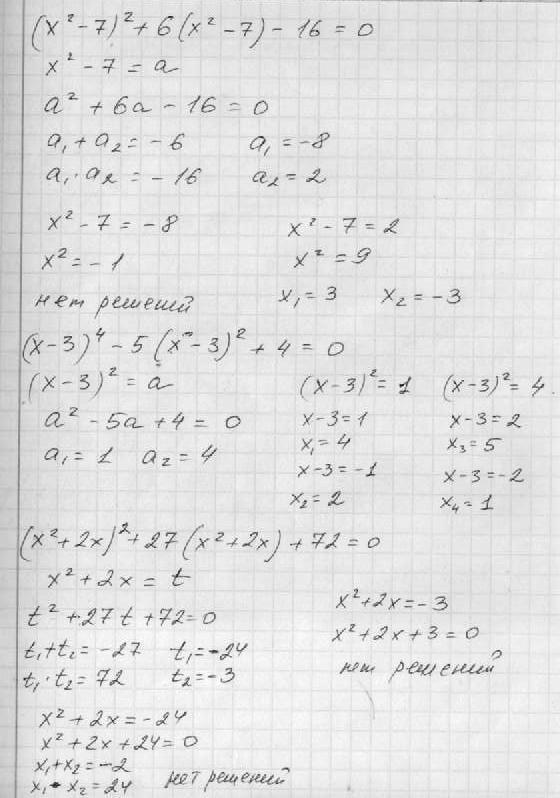 (x² - 7)² + 6(x² - 7) - 16 = 0
x² - 7 = a
a² + 6a - 16 = 0
a₁ + a₂ = -6    a₁ = -8
a₁ · a₂ = -16    a₂ = 2
x² - 7 = -8    x² - 7 = 2
x² = -1    x² = 9
нет решений    x₁ = 3    x₂ = -3
(x-3)⁴ - 5(x-3)² + 4 = 0
(x-3)² = a    (x-3)² = 1    (x-3)² = 4
a² - 5a + 4 = 0    x-3 = 1    x-3 = 2
a₁ = 1    a₂ = 4    x₁ = 4    x₃ = 5
x-3 = -1    x-3 = -2
x₂ = 2    x₄ = 1
(x² + 2x)² + 27(x² + 2x) + 72 = 0
x² + 2x = t
t² + 27t + 72 = 0
t₁ + t₂ = -27    t₁ = -24
t₁ · t₂ = 72    t₂ = -3
x² + 2x = -3
x² + 2x + 3 = 0
нет решений
x² + 2x = -24
x² + 2x + 24 = 0
x₁ + x₂ = -2
x₁ · x₂ = 24    нет решений